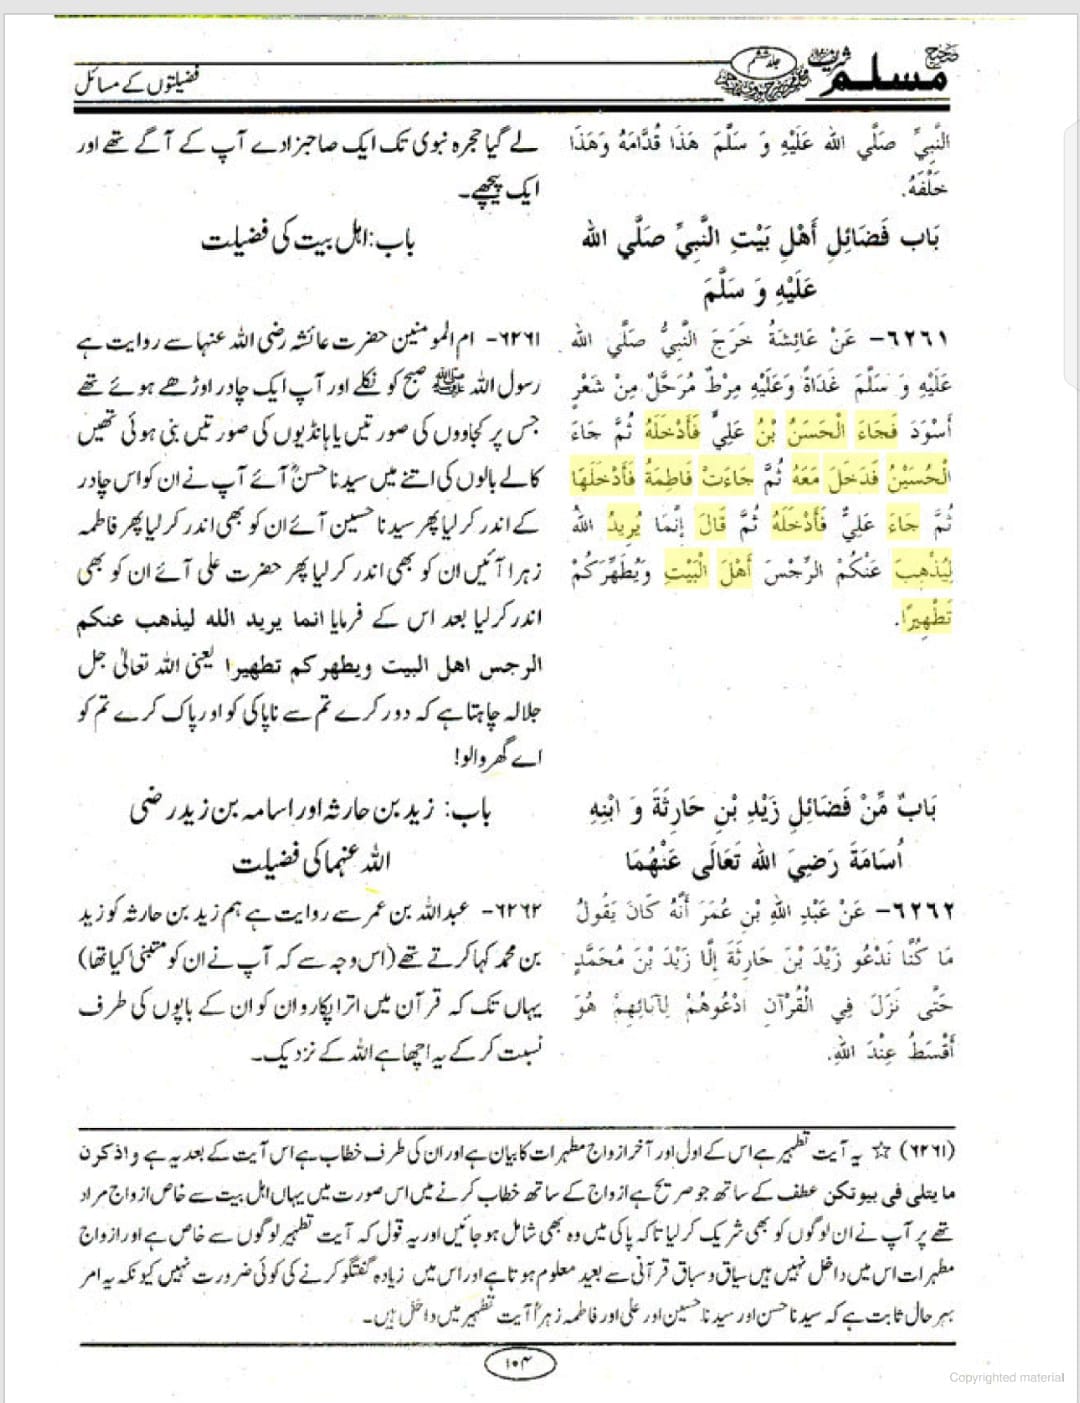 صحیح مسلم شریف
جلد ششم
فضیلتوں کے مسائل
النَّبِيِّ صَلَّي الله عَلَيْهِ وَ سَلَّمَ هَذَا قُدَّامَهُ وَهَذَا
خَلْفَهُ.
بَاب فَضَائِلِ أَهْلِ بَيْتِ النَّبِيِّ صَلَّي الله
عَلَيْهِ وَ سَلَّمَ
٦٢٦١- عَنْ عَائِشَةُ خَرَجَ النَّبِيُّ صَلَّي الله
عَلَيْهِ وَ سَلَّمَ غَدَاةً وَعَلَيْهِ مِرْطٌ مُرَحَّلٌ مِنْ شَعْرٍ
أَسْوَدَ فَجَاءَ الْحَسَنُ بْنُ عَلِيٍّ فَأَدْخَلَهُ ثُمَّ جَاءَ
الْحُسَيْنُ فَدَخَلَ مَعَهُ ثُمَّ جَاءَتْ فَاطِمَةُ فَأَدْخَلَهَا
ثُمَّ جَاءَ عَلِيٌّ فَأَدْخَلَهُ ثُمَّ قَالَ إِنَّمَا يُرِيدُ اللهُ
لِيُذْهِبَ عَنْكُمْ الرِّجْسَ أَهْلَ الْبَيْتِ وَيُطَهِّرَكُمْ
تَطْهِيرًا.
بَابٌ مِّنْ فَضَائِلِ زَيْدِ بْنِ حَارِثَةَ وَ ابْنِهِ
أُسَامَةَ رَضِيَ الله تَعَالَى عَنْهُمَا
٦٢٦٢- عَنْ عَبْدِ اللهِ بْنِ عُمَرَ أَنَّهُ كَانَ يَقُولُ
مَا كُنَّا نَدْعُو زَيْدَ بْنَ حَارِثَةَ إِلَّا زَيْدَ بْنَ مُحَمَّدٍ
حَتَّى نَزَلَ فِي الْقُرْآنِ ادْعُوهُمْ لِآبَائِهِمْ هُوَ
أَقْسَطُ عِنْدَ اللهِ.
لے گیا حجرہ نبوی تک ایک صاحبزادے آپ کے آگے تھے اور
ایک پیچھے۔
باب: اہل بیت کی فضیلت
۶۲۶۱- ام المومنین حضرت عائشہ رضی اللہ عنہا سے روایت ہے
رسول اللہ ﷺ صبح کو نکلے اور آپ ایک چادر اوڑھے ہوئے تھے
جس پر کجاووں کی صورتیں یا ہانڈیوں کی صورتیں بنی ہوئی تھیں
کالے بالوں کی اتنے میں سیدنا حسنؓ آئے آپ نے ان کو اس چادر
کے اندر کر لیا پھر سیدنا حسین آئے ان کو بھی اندر کر لیا پھر فاطمہ
زہرا آئیں ان کو بھی اندر کر لیا پھر حضرت علی آئے ان کو بھی
اندر کر لیا بعد اس کے فرمایا انما یرید الله لیذهب عنکم
الرجس اهل البیت ویطهرکم تطهیرا یعنی اللہ تعالیٰ جل
جلالہ چاہتا ہے کہ دور کرے تم سے ناپاکی کو اور پاک کرے تم کو
اے گھر والو!
باب: زید بن حارثہ اور اسامہ بن زید رضی
اللہ عنہما کی فضیلت
۶۲۶۲- عبداللہ بن عمر سے روایت ہے ہم زید بن حارثہ کو زید
بن محمد کہا کرتے تھے (اس وجہ سے کہ آپ نے ان کو متبنیٰ کیا تھا)
یہاں تک کہ قرآن میں اترا پکارو ان کو ان کے باپوں کی طرف
نسبت کر کے یہ اچھا ہے اللہ کے نزدیک۔
(۶۲۶۱) ☆ یہ آیت تطہیر ہے اس کے اول اور آخر ازواج مطہرات کا بیان ہے اور ان کی طرف خطاب ہے اس آیت کے بعد یہ ہے واذکرن
ما یتلی فی بیوتکن عطف کے ساتھ جو صریح ہے ازواج کے ساتھ خطاب کرنے میں اس صورت میں یہاں اہل بیت سے خاص ازواج مراد
تھے پر آپ نے ان لوگوں کو بھی شریک کر لیا تاکہ پاکی میں وہ بھی شامل ہو جائیں اور یہ قول کہ آیت تطہیر لوگوں سے خاص ہے اور ازواج
مطہرات اس میں داخل نہیں ہیں سیاق و سباق قرآنی سے بعید معلوم ہوتا ہے اور اس میں زیادہ گفتگو کرنے کی کوئی ضرورت نہیں کیونکہ یہ امر
بہر حال ثابت ہے کہ سیدنا حسن اور سیدنا حسین اور علی اور فاطمہ زہراؓ آیت تطہیر میں داخل ہیں۔
۱۰۴
Copyrighted material